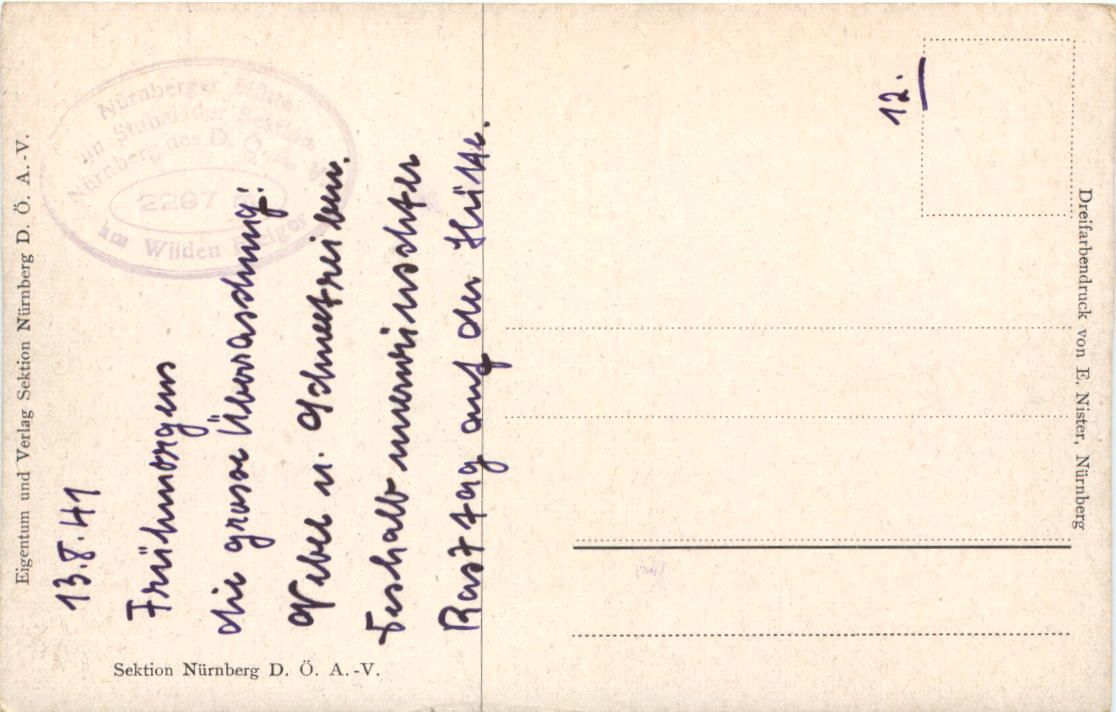 Eigentum und Verlag Sektion Nürnberg D. Ö. A.-V.
Nürnberger Hütte
im Stubai der Sektion
Nürnberg des D. Ö. A. V.
2297
am Wilden
13.8.41
Frühmorgens
die grosse Überraschung:
Nebel u. Schneetreiben.
Deshalb unerwünschter
Rasttag auf der Hütte.
Sektion Nürnberg D. Ö. A.-V.
12.
Dreifarbendruck von E. Nister, Nürnberg